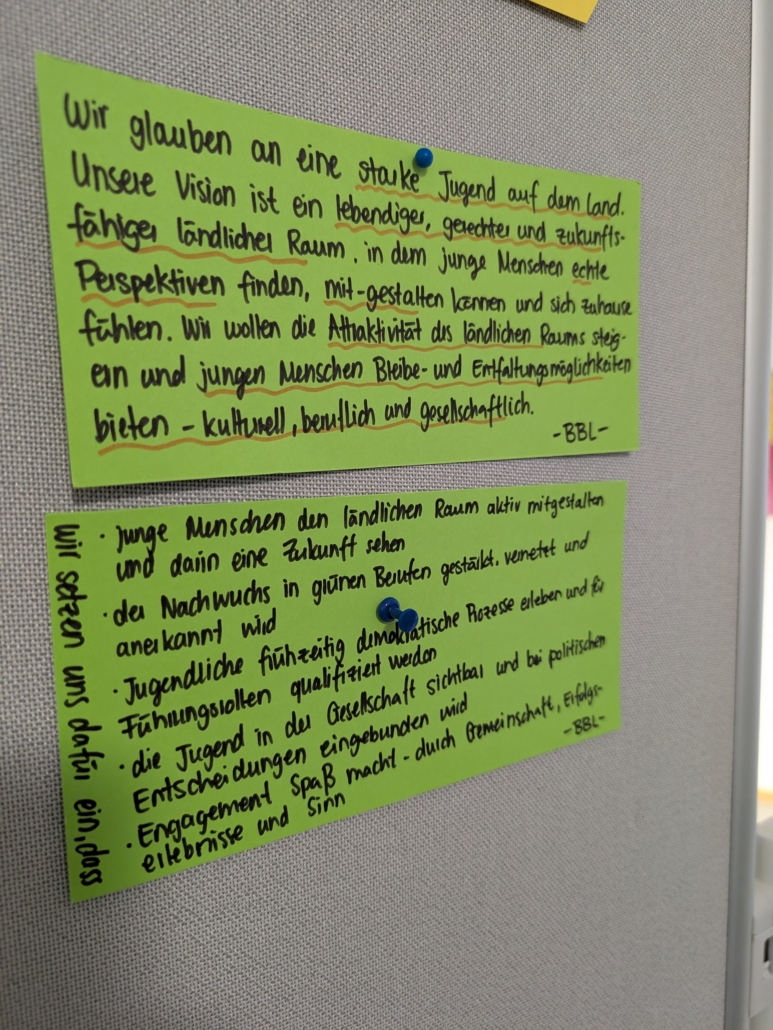 Wir glauben an eine starke Jugend auf dem Land.
Unsere Vision ist ein lebendiger, gerechter und zukunfts-
fähiger ländlicher Raum, in dem junge Menschen echte
Perspektiven finden, mit-gestalten können und sich zuhause
fühlen. Wir wollen die Attraktivität des ländlichen Raums steig-
ern und jungen Menschen Bleibe- und Entfaltungsmöglichkeiten
bieten - kulturell, beruflich und gesellschaftlich.
-BBL-
Wir setzen uns dafür ein, dass
· junge Menschen den ländlichen Raum aktiv mitgestalten
und darin eine Zukunft sehen
· der Nachwuchs in grünen Berufen gestärkt, vernetzt und
anerkannt wird
· Jugendliche frühzeitig demokratische Prozesse erleben und für
Führungsrollen qualifiziert werden
· die Jugend in der Gesellschaft sichtbar und bei politischen
Entscheidungen eingebunden wird
· Engagement Spaß macht - durch Gemeinschaft, Erfolgs-
erlebnisse und Sinn
-BBL-